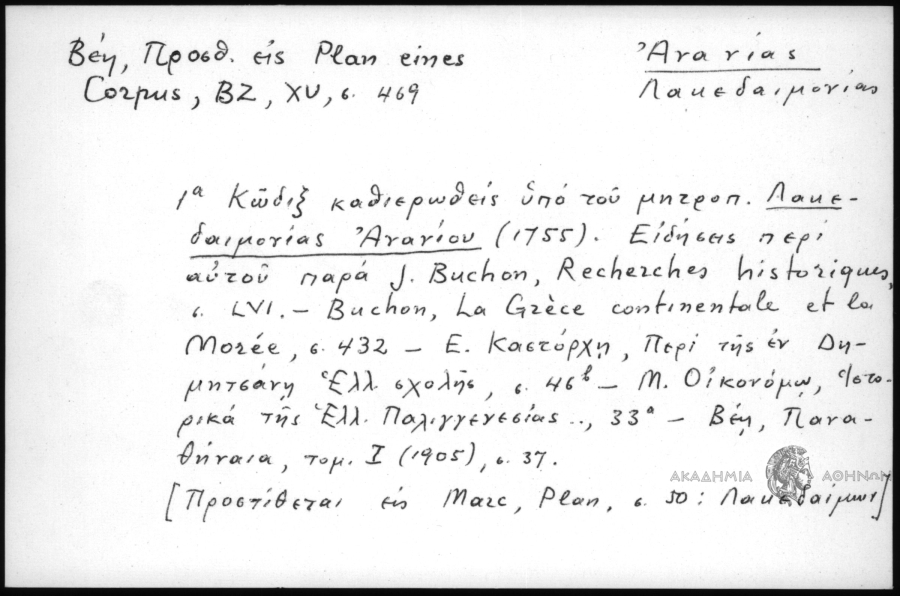 Βέη, Προσθ. εἰς Plan eines
Corpus, BZ, XV, σ. 469
Ἀνανίας
Λακεδαιμονίας
1ª Κῶδιξ καθιερωθείς ὑπό τοῦ μητροπ. Λακε-
δαιμονίας Ἀνανίου (1755). Εἰδήσεις περί
αὐτοῦ παρά J. Buchon, Recherches historiques,
σ. LVI. – Buchon, La Grèce continentale et la
Morée, σ. 432 – Ε. Καστόρχη, Περί τῆς ἐν Δη-
μητσάνῃ Ἑλλ. σχολῆς, σ. 46ᵇ – Μ. Οἰκονόμῳ, Ἱστο-
ρικά τῆς Ἑλλ. Παλιγγενεσίας .., 33ª – Βέη, Πανα-
θήναια, τομ. I (1905), σ. 37.
[Προστίθεται εἰς Marc, Plan, σ. 50: Λακεδαίμων]
ΑΚΑΔΗΜΙΑ ΑΘΗΝΩΝ